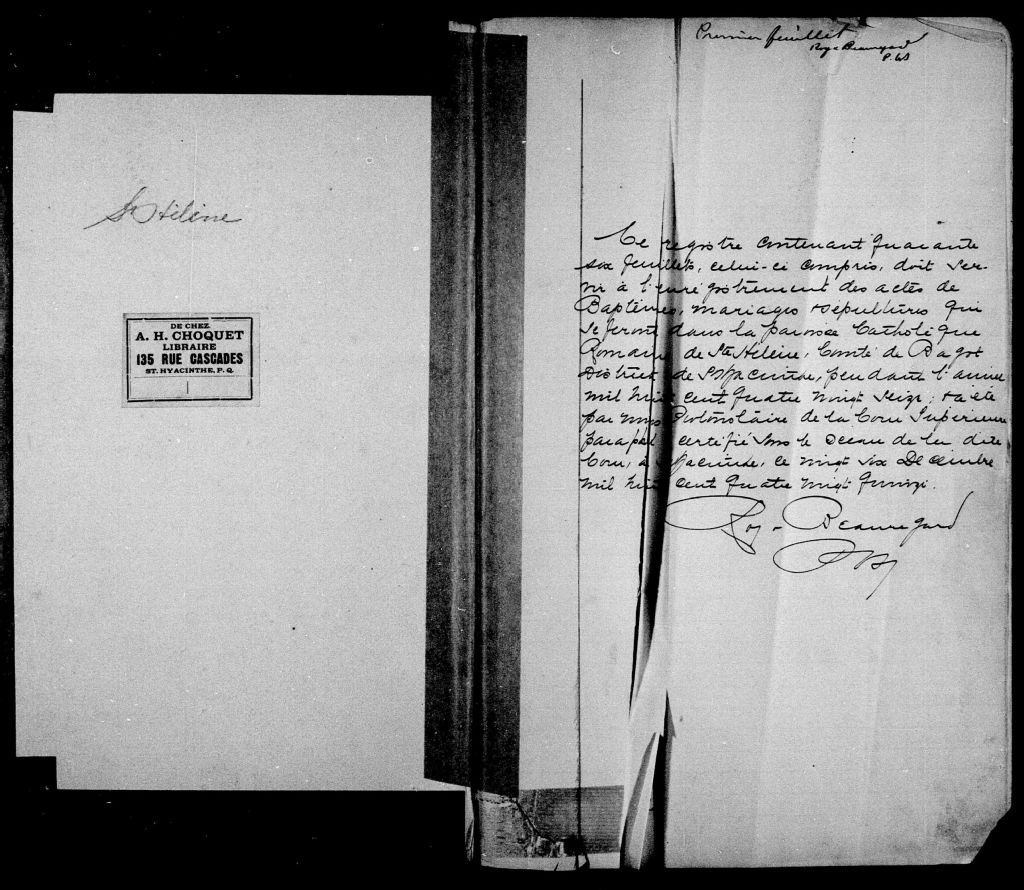 Ste Hélène
DE CHEZ
A. H. CHOQUET
LIBRAIRE
135 RUE CASCADES
ST. HYACINTHE, P. Q.
Premier feuillet
Roy & Beauregard
P.C.S
Ce registre contenant quarante
six feuillets, celui-ci compris, doit ser-
vir à l'enregistrement des actes de
Baptêmes, mariages & sépultures qui
se feront dans la paroisse Catholique
Romaine de Ste Hélène, Comté de Bagot
District de St Hyacinthe, pendant l'année
mil huit cent quatre vingt seize; & a été
par nous Protonotaire de la Cour Supérieure
paraphé certifié sous le Sceau de la dite
Cour, à St Hyacinthe, ce vingt six Décembre
mil huit cent quatre vingt quinze.
Roy & Beauregard
PCS